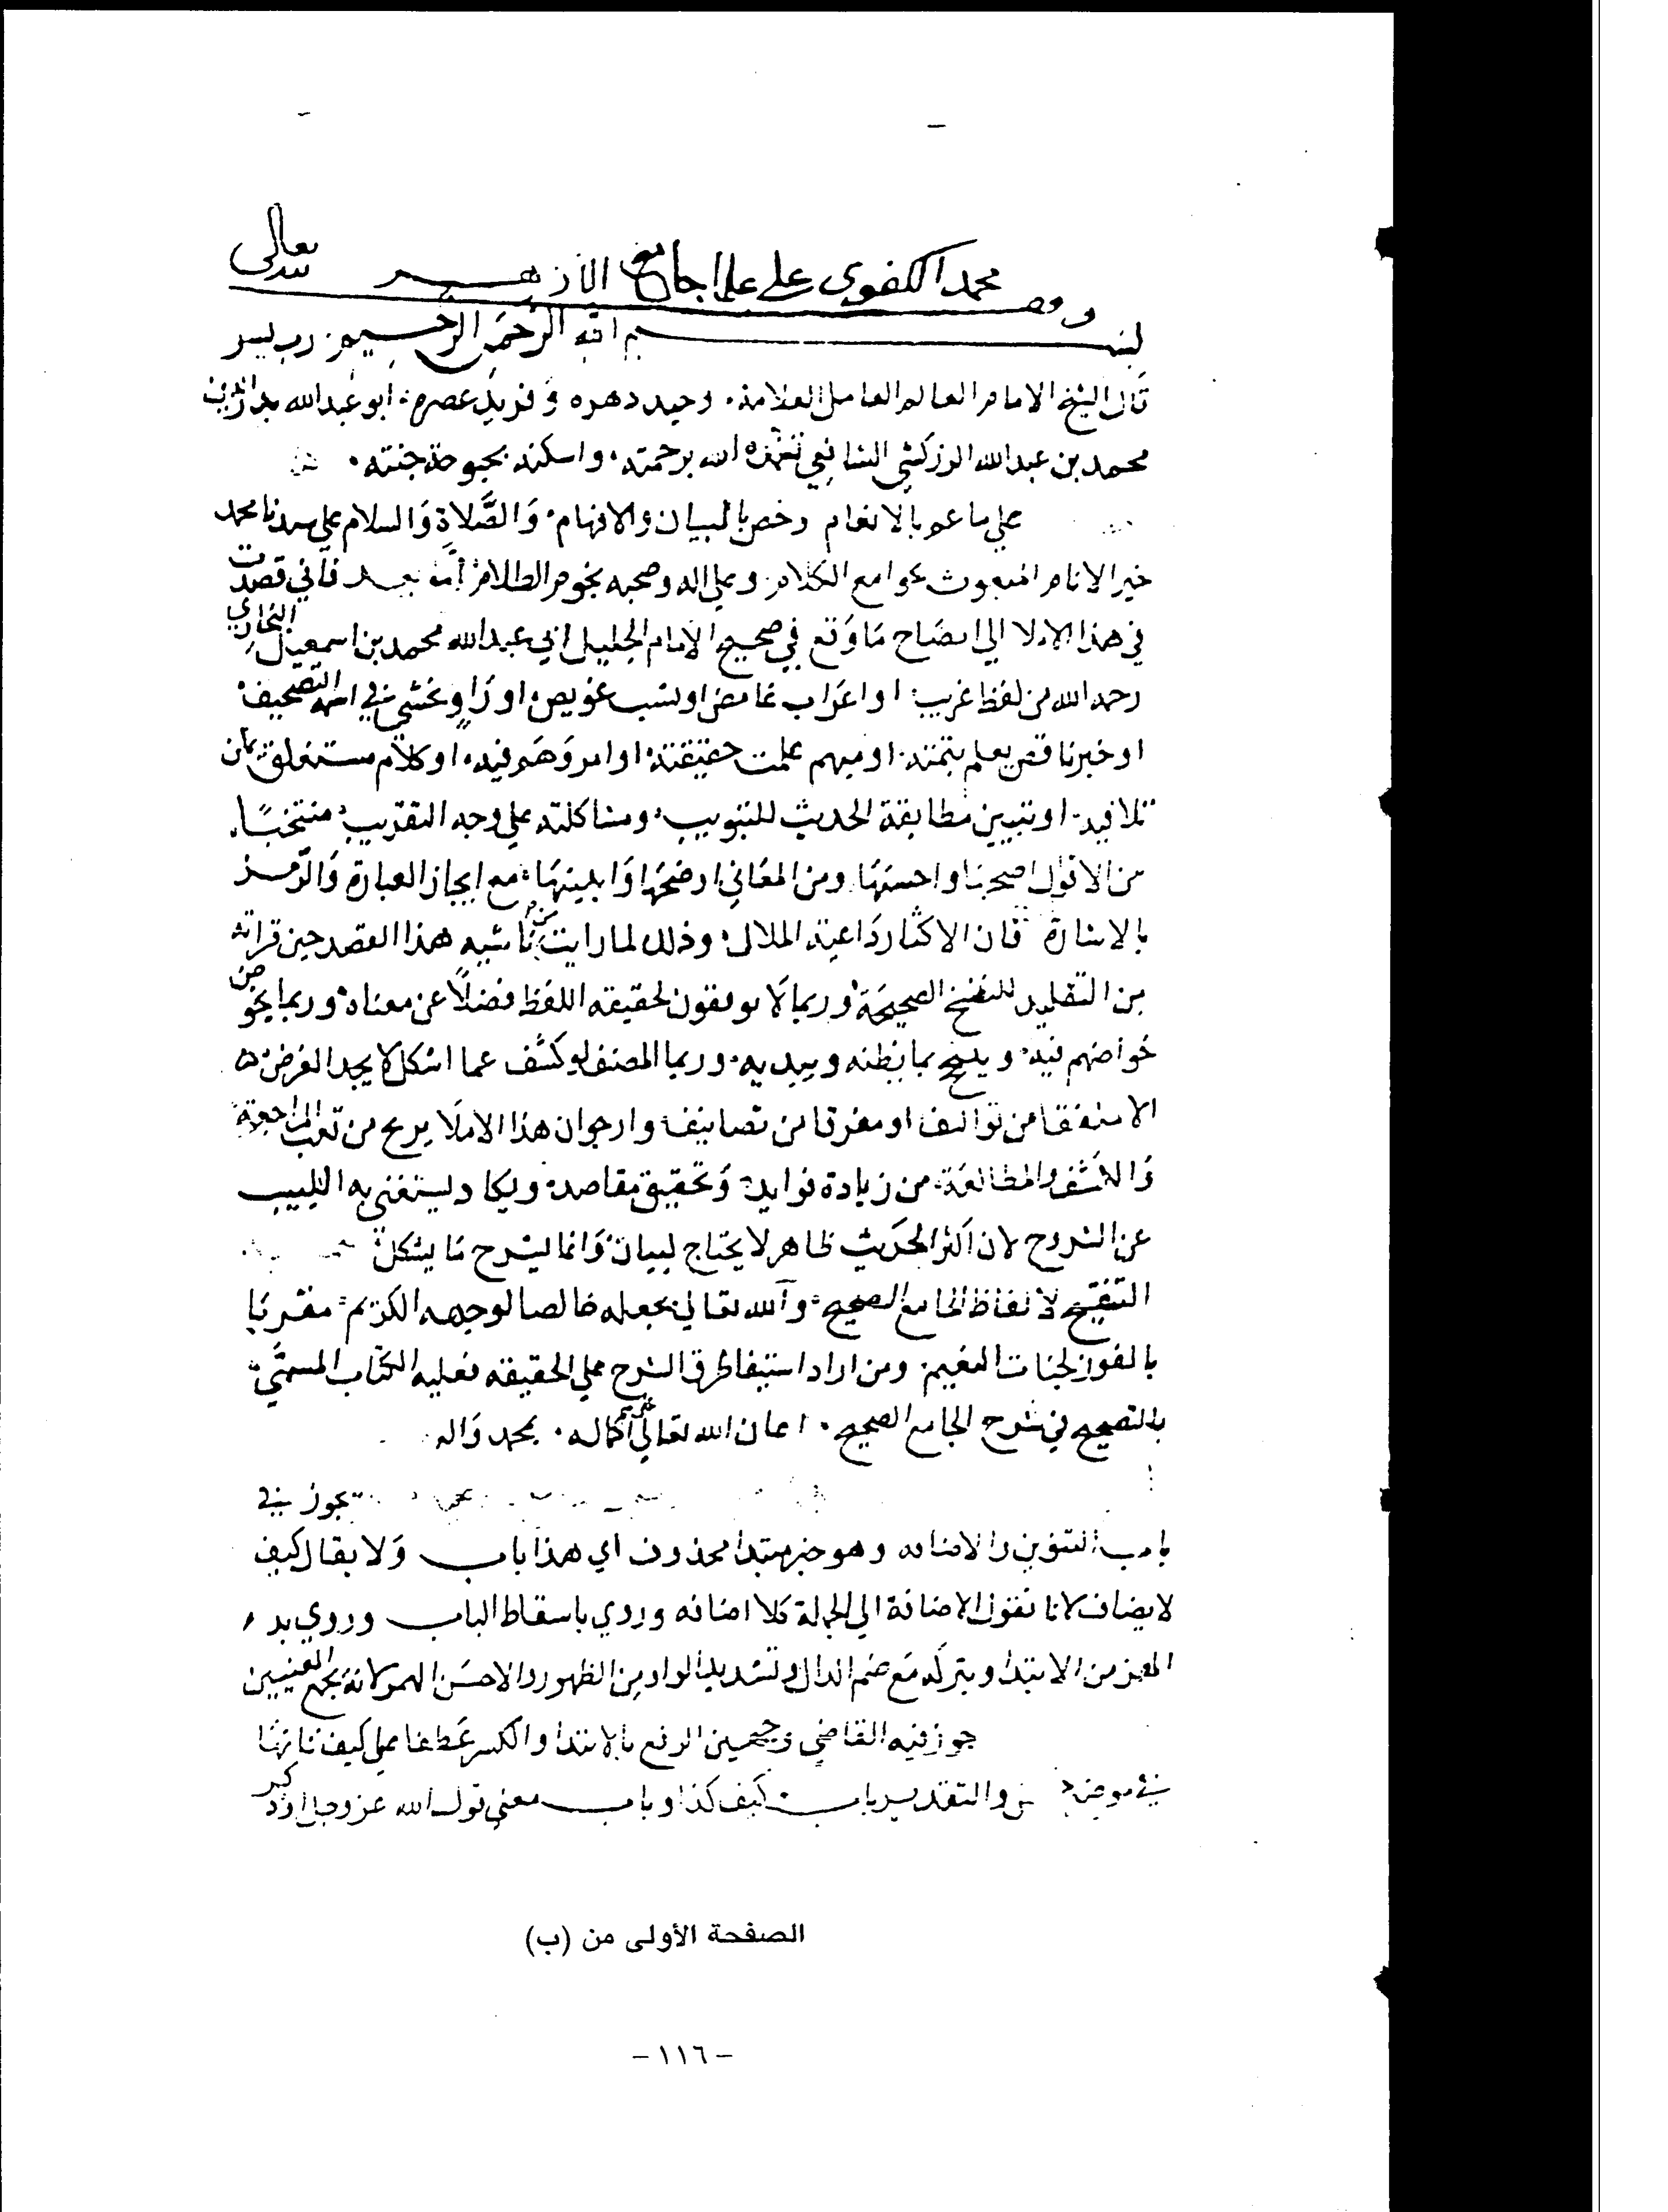 وقف محمد الكفوي على علما جامع الأزهر تعالى لله
بسم الله الرحمن الرحيم رب يسر
قال الشيخ الامام العالم العامل العلامة وحيد دهره وفريد عصره ابو عبدالله بدر الدين
محمد بن عبدالله الزركشي الشافعي تغمده الله برحمته واسكنه بحبوحة جنته
علي ما عم بالانعام وخص بالبيان والافهام والصَّلاة والسلام علي سيدنا محمد
خير الانام المبعوث بجوامع الكلام وعلي اله وصحبه نجوم الظلام أما بعد فاني قصدت
في هذا الاملا الي ايضاح ما وقع في صحيح الامام الجليل ابي عبدالله محمد بن اسمعيل البخاري
رحمه الله من لفظ غريب او اعراب غامض او نسب عويص او راوٍ يخشي في اسمه التصحيف
او خبر ناقص يعلم تتمته او مبهم علمت حقيقته او امر وهم فيه او كلام مستغلق يمكن
تلافيه او تبيين مطابقة الحديث للتبويب ومشاكلته علي وجه التقريب منتخبًا
من الاقوال اصحها واحسنها ومن المعاني اوضحها وابينها مع ايجاز العبارة والرمز
بالاشارة فان الاكثار داعية الملال وذلك لما رايت من ناشيه هذا العصر حين قراته
من التقليد للنسخ الصحيحة وربما لا يوفقون لحقيقه اللفظ فضلًا عن معناه وربما يخوض
خواضهم فيه ويتبجح بما يظنه ويبديه وربما المصنف لو كشف عما اشكل لا يجد الغرض
الا متفقا من تواليف او مفرقا من تصانيف وارجو ان هذا الاملا يريح من تعب المراجعة
والكشف والمطالعة من زيادة فوايد وتحقيق مقاصد ويكاد يستغني به اللبيب
عن الشروح لان اكثر الحديث ظاهر لا يحتاج لبيان وانما يشرح ما يشكل
التنقيح لالفاظ الجامع الصحيح والله تعالي يجعله خالصا لوجهه الكريم مقربا
بالفوز لجنات النعيم ومن اراد استيفا طرق الشرح علي الحقيقه فعليه الكتاب المسمي
بالفصيح في شرح الجامع الصحيح اعان الله تعالي علي اكماله بمحمد واله
يجوز في
باب التنوين والاضافه وهو خبر مبتدا محذوف اي هذا باب ولا يقال كيف
لا يضاف لانا نقول الاضافة الي الجملة كلا اضافه وروي باسقاط الباب وروي بدء
الهمز من الابتدا وبتركه مع ضم الدال وتشديد الواو من الظهور والاحسن الهمز لانه يجمع المعنيين
جوز فيه القاضي وجهين الرفع بالابتدا والكسر عطفا علي كيف فانها
في موضع والتقدير باب كيف كذا وباب معني قول الله عز وجل او ذكر
الصفحة الأولى من (ب)
- ١١٦ -